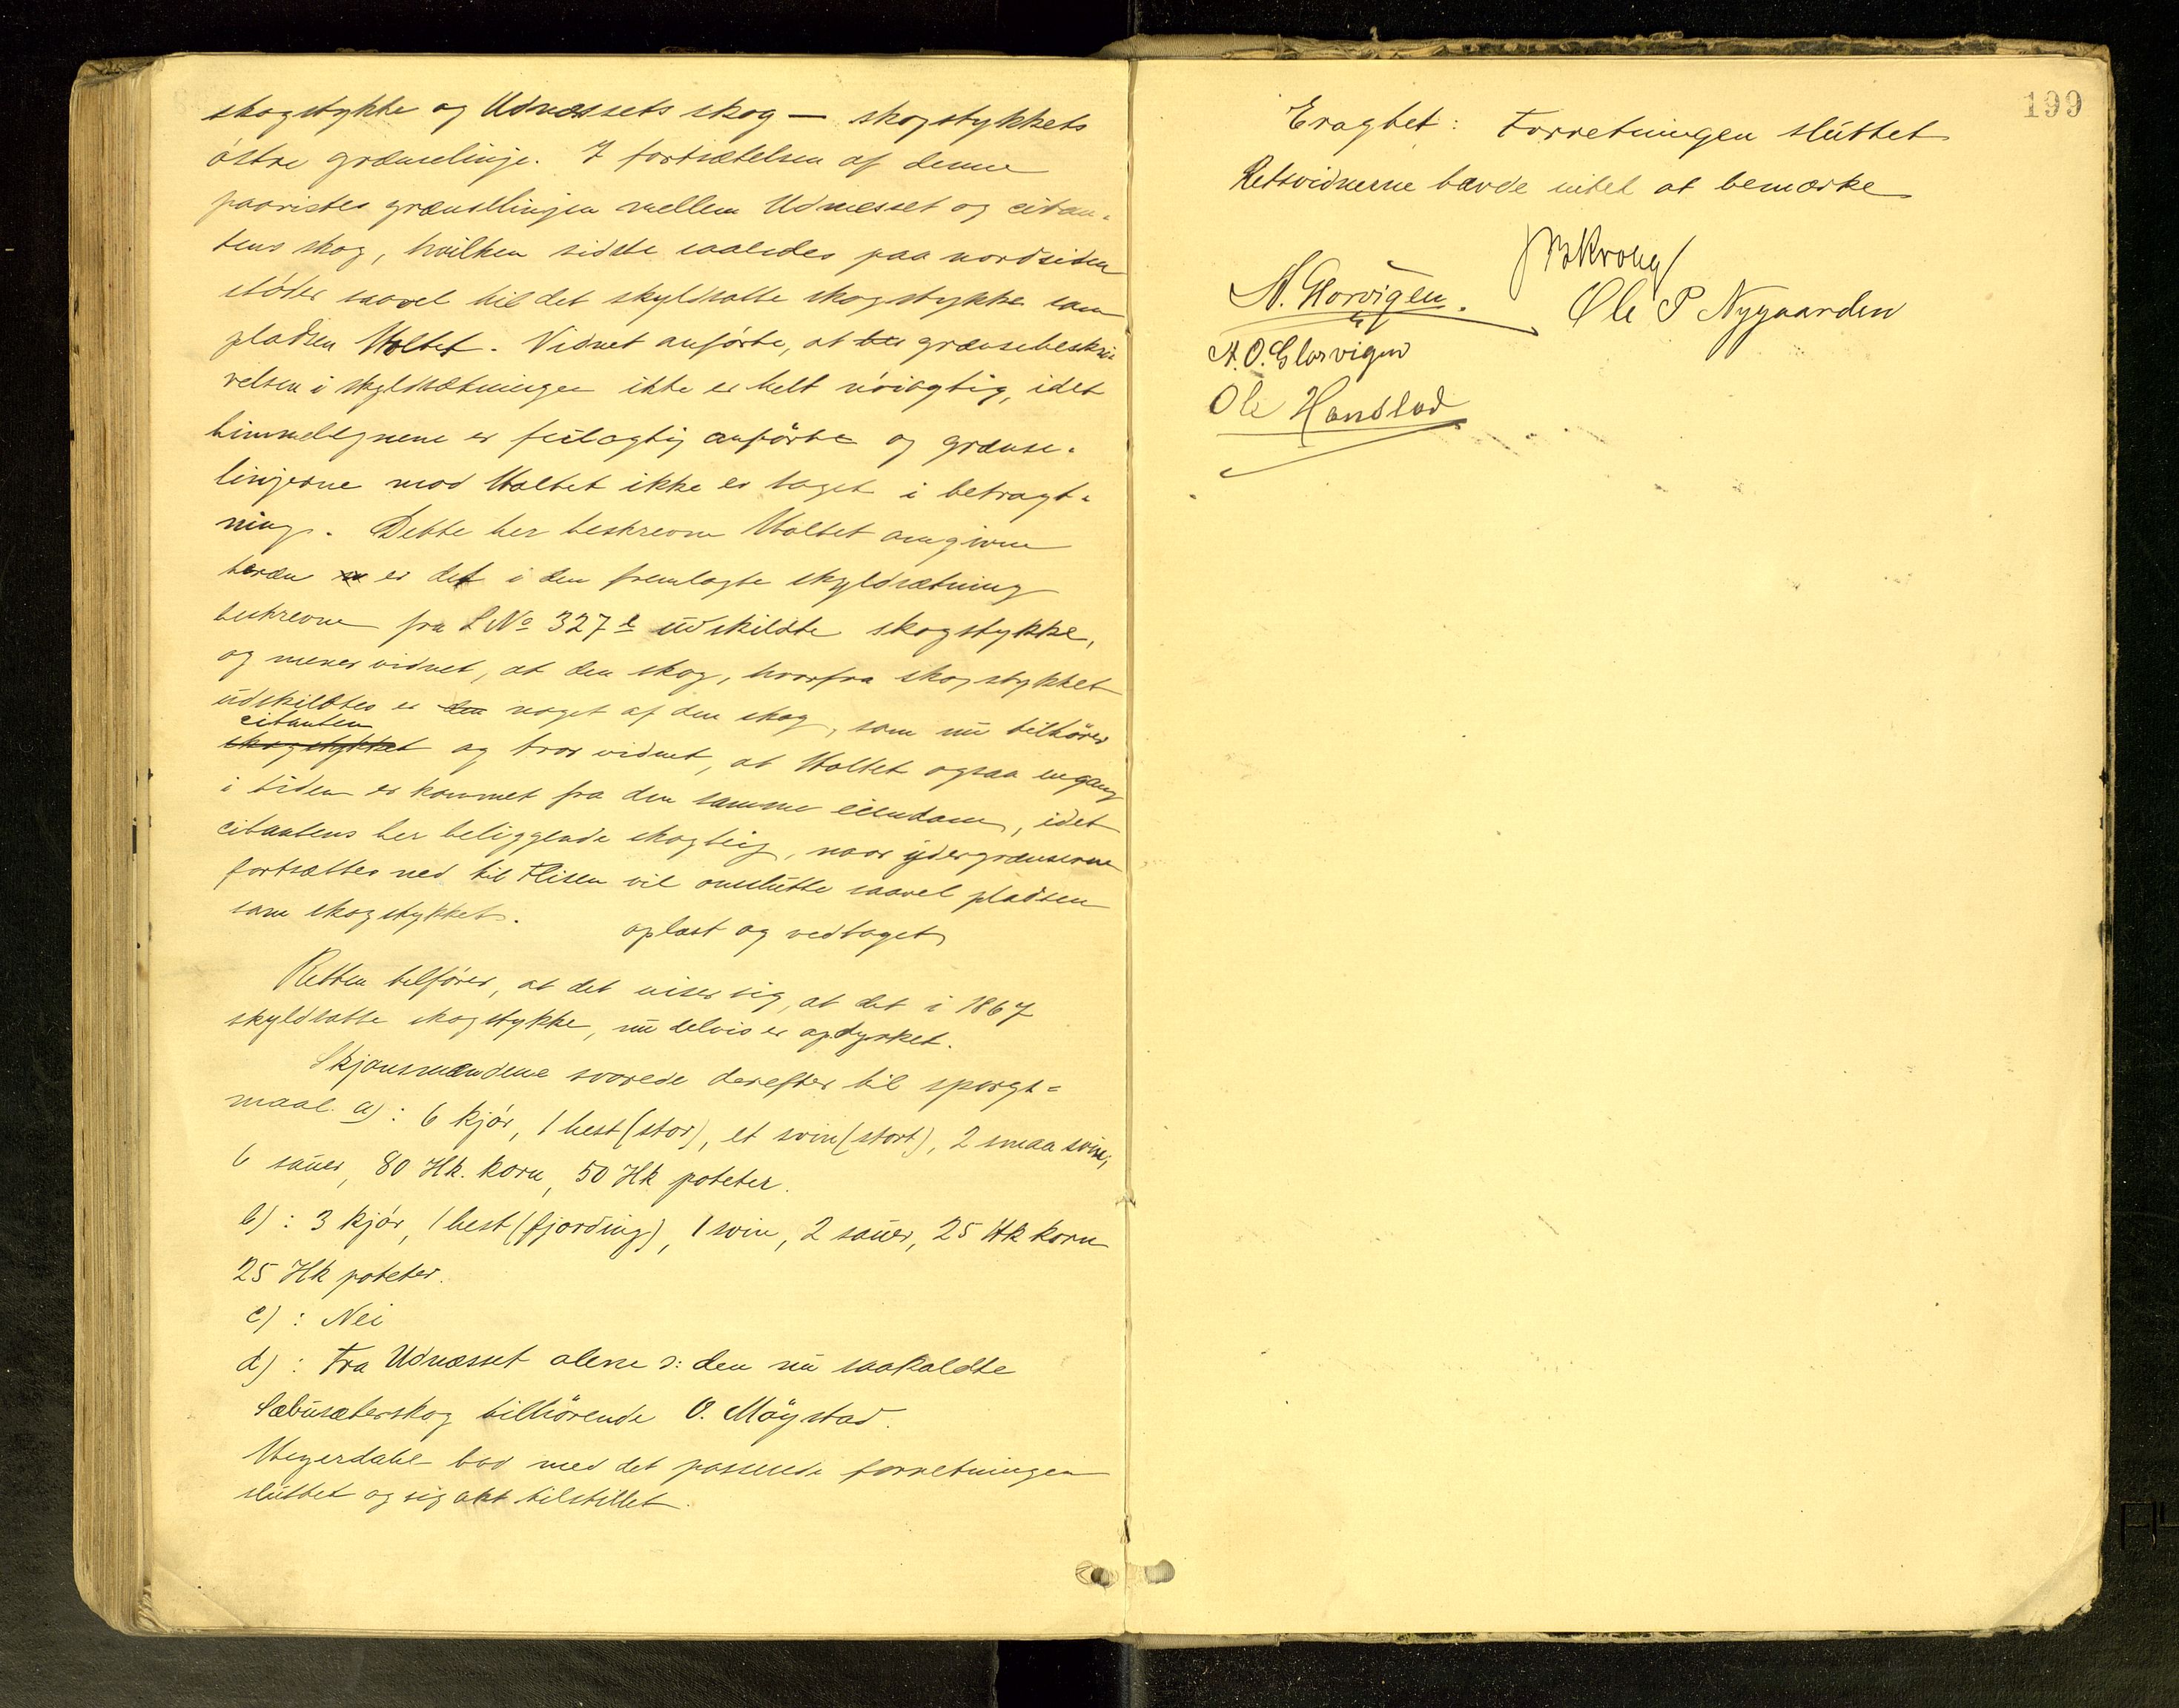 skogstykke og Udnæssets skog — skogstykkets
östre grændselinje. I fortsættelsen af denne
paavistes grændselinjen mellem Udnæsset og citan-
tens skog, hvilken sidste saaledes paa nordsiden
stöder saavel til det skyldsatte skogstykke som
pladsen Holtet. Vidnet anförte, at grænsebeskri-
velsen i skyldsætningen ikke er helt nöiagtig, idet
himmelegnene er feilagtig anförte og grænse-
linjerne mod Holtet ikke er taget i betragt-
ning. Dette her beskrevne Holtet omgivne
terræn er det i den fremlagte skyldsætning
beskrevne fra L No 327 e udskildte skogstykke,
og mener vidnet, at den skog, hvorfra skogstykket
udskildtes er den noget af den skog, som nu tilhörer
citanten
skogstykket og tror vidnet, at Holtet ogsaa engang
i tiden er kommet fra den samme eiendom, idet
citantens her beliggende skogteig, naar ydergrænserne
fortsættes ned til Flisen vil omslutte saavel pladsen
som skogstykket.
oplæst og vedtaget
Retten tilförer, at det viser sig, at det i 1867
skyldsatte skogstykke, nu delvis er opdyrket.
Skjönsmændene svarede derefter til spörgs-
maal a) : 6 kjör, 1 hest (stor), et svin (stort), 2 smaa svin,
6 sauer, 80 Hk. korn, 50 Hk poteter.
b) : 3 kjör, 1 hest (fjording), 1 svin, 2 sauer, 25 Hk korn
25 Hk poteter.
c) : Nei
d) : Fra Udnæsset alene ɔ: den nu saakaldte
Sæbusæterskog tilhörende O. Möystad.
Wegerdahl bad med det passerede forretningen
sluttet og sig akt tilstillet.
199
Eragtet: Forretningen sluttet
Retsvidnerne havde intet at bemærke
JB Krohg
N. Glorvigen. Ole P Nygaarden
A. O. Glorvigen
Ole Handstad